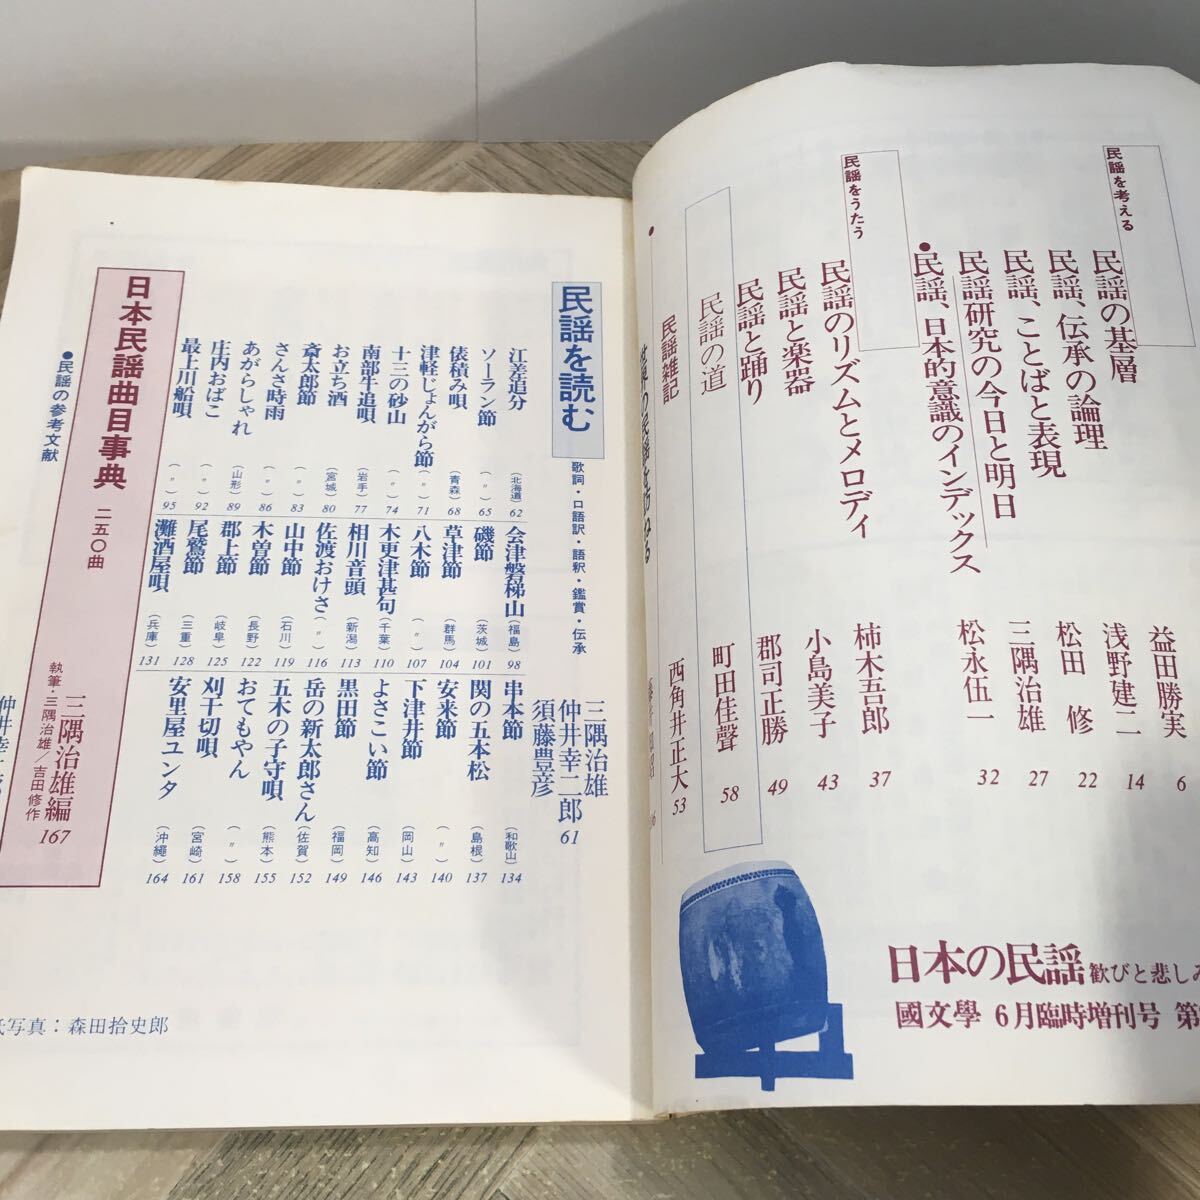 民謡を考える
民謡の基層 益田勝実 6
民謡、伝承の論理 浅野建二 14
民謡、ことばと表現 松田 修 22
民謡研究の今日と明日 三隅治雄 27
●民謡、日本的意識のインデックス 松永伍一 32
民謡をうたう
民謡のリズムとメロディ 柿木吾郎 37
民謡と楽器 小島美子 43
民謡と踊り 郡司正勝 49
民謡の道 町田佳聲 58
民謡雑記 西角井正大 53
日本の民謡 歓びと悲しみ
國文學 6月臨時増刊号 第
民謡を読む 歌詞・口語訳・語釈・鑑賞・伝承
三隅治雄
仲井幸二郎 61
須藤豊彦
江差追分 (北海道) 62
ソーラン節 (〃) 65
俵積み唄 (青森) 68
津軽じょんがら節 (〃) 71
十三の砂山 (〃) 74
南部牛追唄 (岩手) 77
お立ち酒 (宮城) 80
斎太郎節 (〃) 83
さんさ時雨 (〃) 86
あがらしゃれ (山形) 89
庄内おばこ (〃) 92
最上川船唄 (〃) 95
会津磐梯山 (福島) 98
磯節 (茨城) 101
草津節 (群馬) 104
八木節 (〃) 107
木更津甚句 (千葉) 110
相川音頭 (新潟) 113
佐渡おけさ (〃) 116
山中節 (石川) 119
木曽節 (長野) 122
郡上節 (岐阜) 125
尾鷲節 (三重) 128
灘酒屋唄 (兵庫) 131
串本節 (和歌山) 134
関の五本松 (島根) 137
安来節 (〃) 140
下津井節 (岡山) 143
よさこい節 (高知) 146
黒田節 (福岡) 149
岳の新太郎さん (佐賀) 152
五木の子守唄 (熊本) 155
おてもやん (〃) 158
刈干切唄 (宮崎) 161
安里屋ユンタ (沖縄) 164
日本民謡曲目事典 二五〇曲
三隅治雄編 167
執筆・三隅治雄/吉田修作
●民謡の参考文献
仲井幸二郎
写真：森田拾史郎